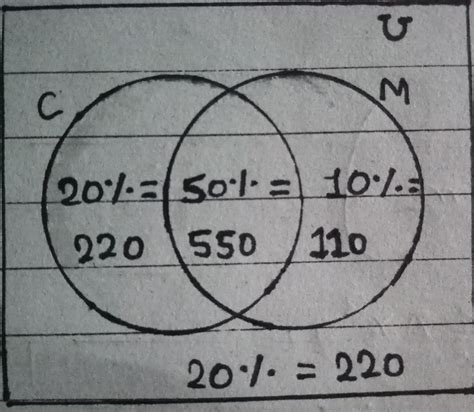 U
C M
20%= 50%= 10%=
220 550 110
20% = 220